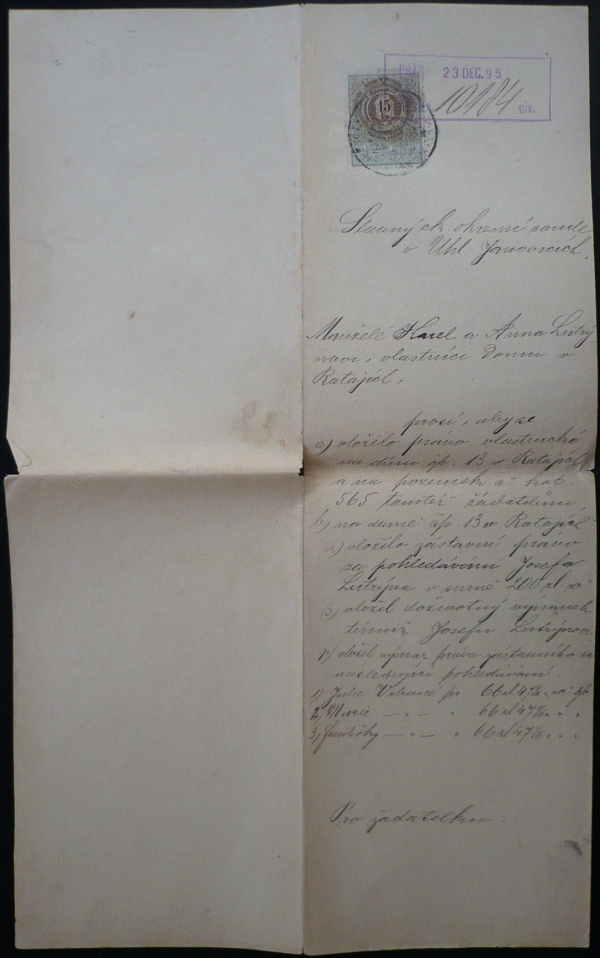 23 DEC. 95
10184 civ.
15
Slavný ck. okresní soude
v Uhl. Janovicích.
Manželé Karel a Anna Lutrý-
novi, vlastníci domu v
Ratajích,
prosí, aby se
a) vložilo právo vlastnické
na dům čp. 13 v Ratajích
a na pozemek č. kat.
565 tamtéž žadatelům,
b) na domě čp. 13 v Ratajích
α) vložilo zástavní právo
za pohledávání Josefa
Lutrýna v sumě 200 zl.
β) vložil doživotný výminek
témuž Josefu Lutrýnovi
γ) vložil výmaz práva zástavního za
následující pohledávání
1) Julie pr. 66 zl 47
2) Marie — „ — „ 66 zl 47
3) Františky — „ — „ 66 zl 47
Pro žadatelku.